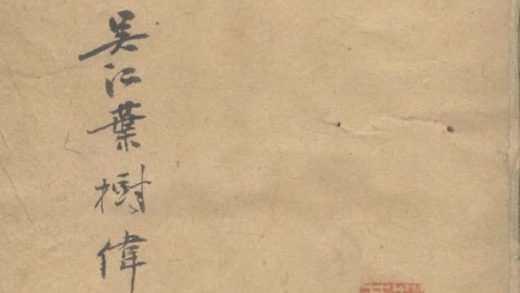 吴江葉樹偉